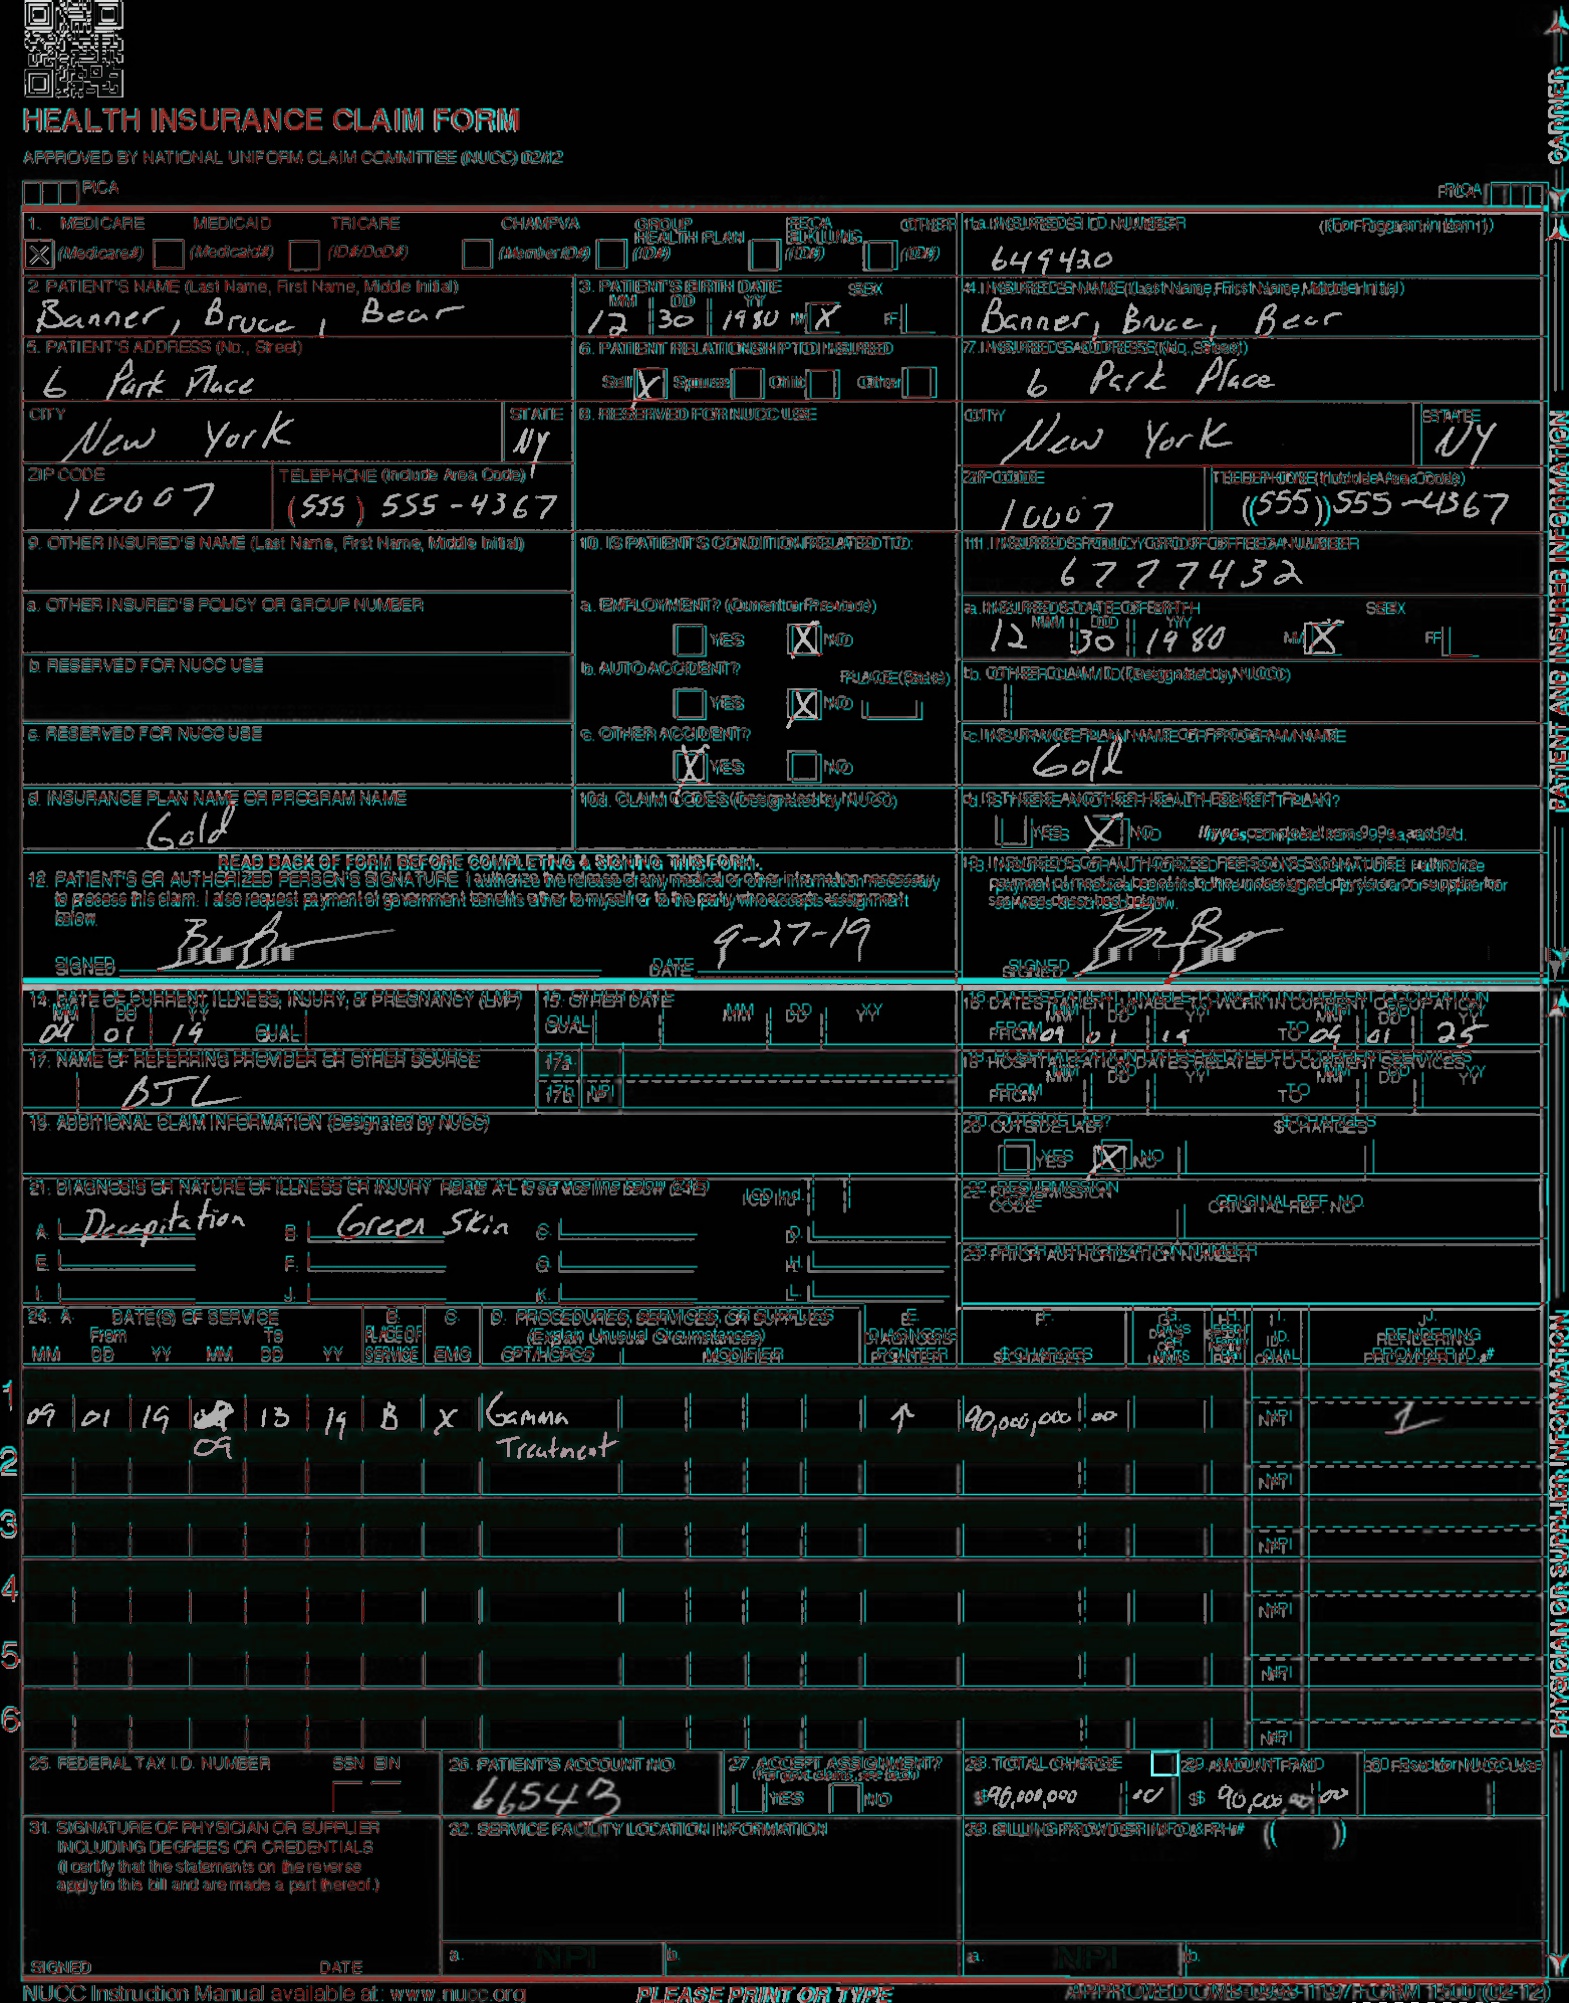 HEALTH INSURANCE CLAIM FORM
APPROVED BY NATIONAL UNIFORM CLAIM COMMITTEE (NUCC) 02/12
PICA PICA
CARRIER
1. MEDICARE MEDICAID TRICARE CHAMPVA GROUP HEALTH PLAN FECA BLK LUNG OTHER
X (Medicare#) (Medicaid#) (ID#/DoD#) (Member ID#) (ID#) (ID#) (ID#)
1a. INSURED'S I.D. NUMBER (For Program in Item 1)
649420
2. PATIENT'S NAME (Last Name, First Name, Middle Initial)
Banner, Bruce, Bear
3. PATIENT'S BIRTH DATE SEX
MM DD YY
12 30 1980 M X F
4. INSURED'S NAME (Last Name, First Name, Middle Initial)
Banner, Bruce, Bear
5. PATIENT'S ADDRESS (No., Street)
6 Park Place
6. PATIENT RELATIONSHIP TO INSURED
Self X Spouse Child Other
7. INSURED'S ADDRESS (No., Street)
6 Park Place
CITY STATE
New York NY
8. RESERVED FOR NUCC USE
CITY STATE
New York NY
ZIP CODE TELEPHONE (Include Area Code)
10007 (555) 555-4367
ZIP CODE TELEPHONE (Include Area Code)
10007 (555) 555-4367
9. OTHER INSURED'S NAME (Last Name, First Name, Middle Initial)
10. IS PATIENT'S CONDITION RELATED TO:
11. INSURED'S POLICY GROUP OR FECA NUMBER
6777432
a. OTHER INSURED'S POLICY OR GROUP NUMBER
a. EMPLOYMENT? (Current or Previous)
YES X NO
a. INSURED'S DATE OF BIRTH SEX
MM DD YY
12 30 1980 M X F
b. RESERVED FOR NUCC USE
b. AUTO ACCIDENT? PLACE (State)
YES X NO
b. OTHER CLAIM ID (Designated by NUCC)
c. RESERVED FOR NUCC USE
c. OTHER ACCIDENT?
X YES NO
c. INSURANCE PLAN NAME OR PROGRAM NAME
Gold
d. INSURANCE PLAN NAME OR PROGRAM NAME
Gold
10d. CLAIM CODES (Designated by NUCC)
d. IS THERE ANOTHER HEALTH BENEFIT PLAN?
YES X NO If yes, complete items 9, 9a, and 9d.
READ BACK OF FORM BEFORE COMPLETING & SIGNING THIS FORM.
12. PATIENT'S OR AUTHORIZED PERSON'S SIGNATURE I authorize the release of any medical or other information necessary
to process this claim. I also request payment of government benefits either to myself or to the party who accepts assignment
below.
SIGNED DATE 9-27-19
13. INSURED'S OR AUTHORIZED PERSON'S SIGNATURE I authorize
payment of medical benefits to the undersigned physician or supplier for
services described below.
SIGNED
PATIENT AND INSURED INFORMATION
14. DATE OF CURRENT ILLNESS, INJURY, or PREGNANCY (LMP)
MM DD YY
09 01 19 QUAL.
15. OTHER DATE
QUAL. MM DD YY
16. DATES PATIENT UNABLE TO WORK IN CURRENT OCCUPATION
MM DD YY MM DD YY
FROM 09 01 19 TO 09 01 25
17. NAME OF REFERRING PROVIDER OR OTHER SOURCE
BJL
17a.
17b. NPI
18. HOSPITALIZATION DATES RELATED TO CURRENT SERVICES
MM DD YY MM DD YY
FROM TO
19. ADDITIONAL CLAIM INFORMATION (Designated by NUCC)
20. OUTSIDE LAB? $ CHARGES
YES X NO
21. DIAGNOSIS OR NATURE OF ILLNESS OR INJURY Relate A-L to service line below (24E) ICD Ind.
A. Decapitation B. Green Skin C. D.
E. F. G. H.
I. J. K. L.
22. RESUBMISSION CODE ORIGINAL REF. NO.
23. PRIOR AUTHORIZATION NUMBER
24. A. DATE(S) OF SERVICE B. C. D. PROCEDURES, SERVICES, OR SUPPLIES E. F. G. H. I. J.
From To PLACE OF (Explain Unusual Circumstances) DIAGNOSIS DAYS OR ID. RENDERING
MM DD YY MM DD YY SERVICE EMG CPT/HCPCS MODIFIER POINTER $ CHARGES UNITS QUAL. PROVIDER ID. #
1
09 01 19 13 19 B X Gamma ↑ 90,000,000 00 NPI 1
09 Treatment
2 NPI
3 NPI
4 NPI
5 NPI
6 NPI
25. FEDERAL TAX I.D. NUMBER SSN EIN
26. PATIENT'S ACCOUNT NO.
6654B
27. ACCEPT ASSIGNMENT?
(For govt. claims, see back)
YES NO
28. TOTAL CHARGE
$ 90,000,000 00
29. AMOUNT PAID
$ 90,000,000 00
30. Rsvd for NUCC Use
31. SIGNATURE OF PHYSICIAN OR SUPPLIER
INCLUDING DEGREES OR CREDENTIALS
(I certify that the statements on the reverse
apply to this bill and are made a part thereof.)
SIGNED DATE
32. SERVICE FACILITY LOCATION INFORMATION
a. NPI b.
33. BILLING PROVIDER INFO & PH # ( )
a. NPI b.
PHYSICIAN OR SUPPLIER INFORMATION
NUCC Instruction Manual available at: www.nucc.org
PLEASE PRINT OR TYPE
APPROVED OMB-0938-1197 FORM 1500 (02-12)